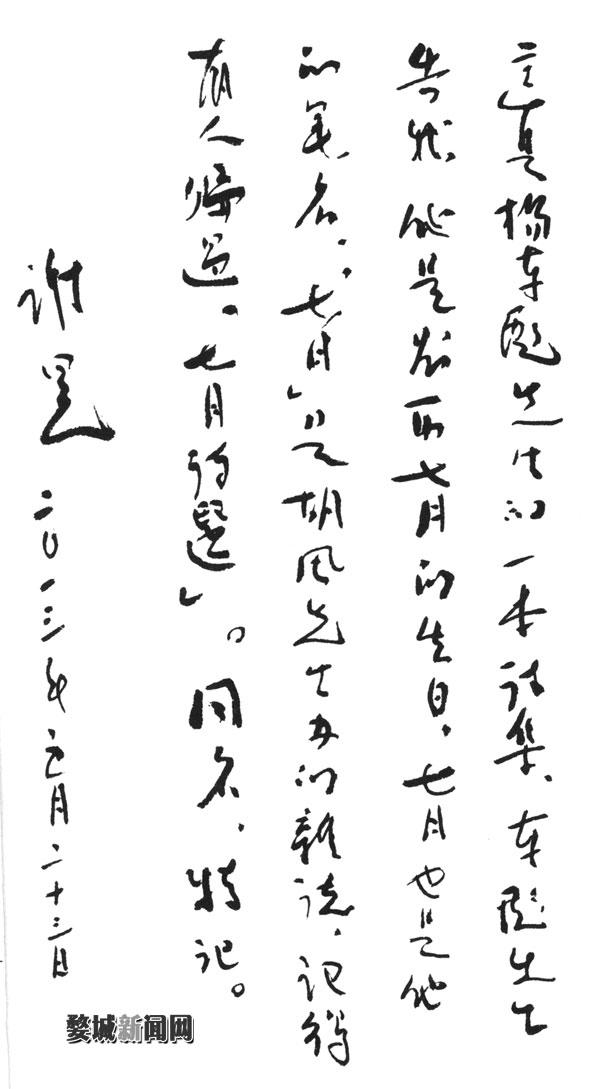 这是杨东彪先生的一本诗集、东彪先生
告我 他是农历七月的生日,七月也是他
的笔名。“七月”是胡风先生办的雜誌,记得
有人编过“七月诗選”。同名,特记。
谢冕 二〇一三年 月二十三日
婺城新闻网